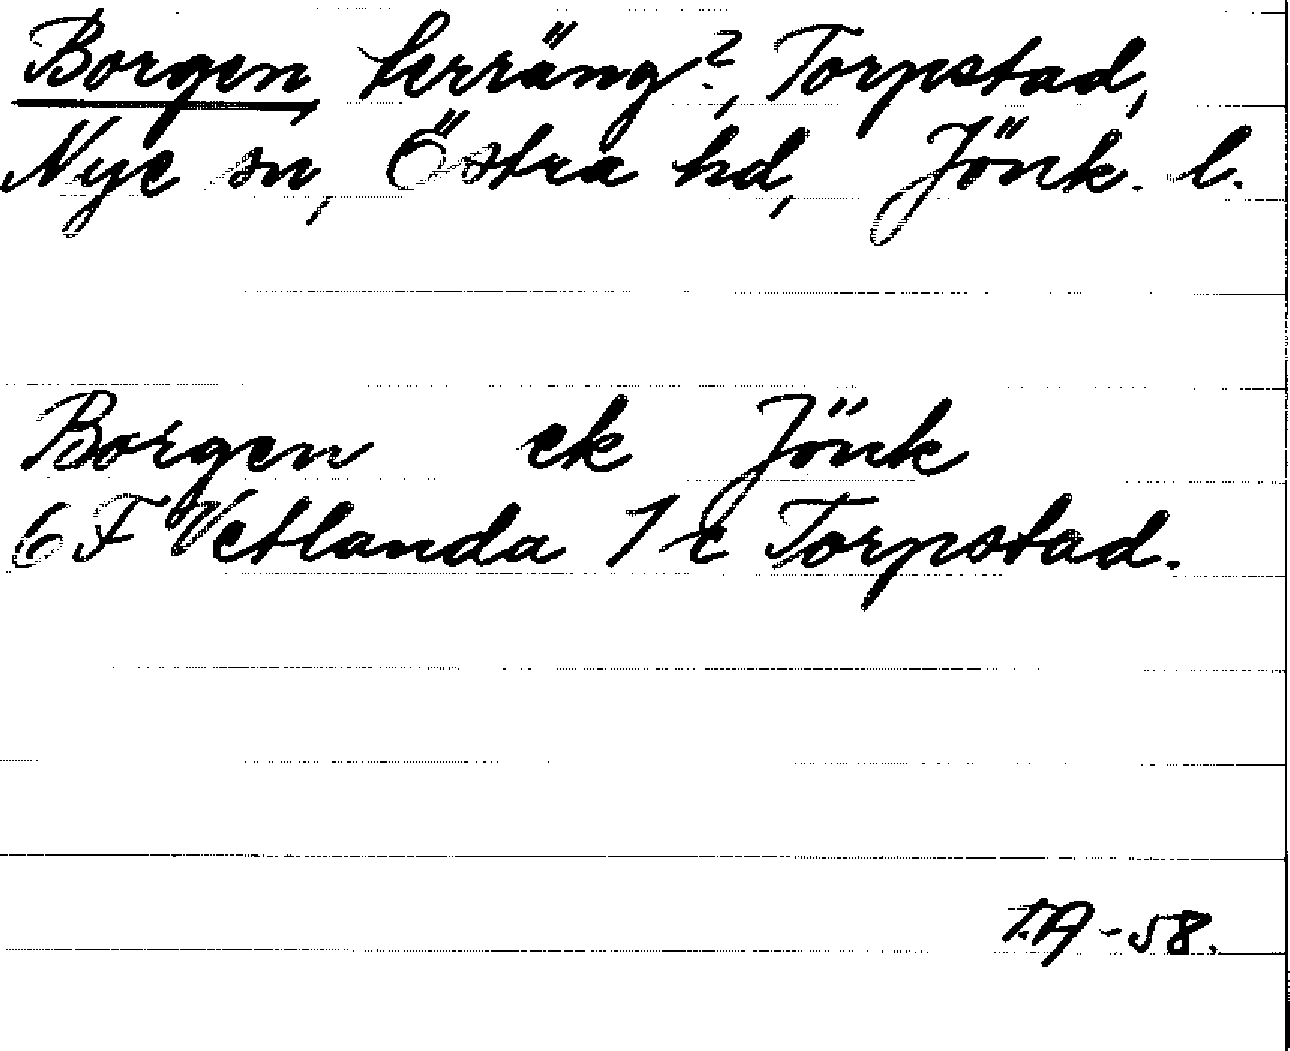 Borgen, terräng?, Torpstad,
Nye sn, Östra hd, Jönk. l.
Borgen ek Jönk
6 F Vetlanda 1 c Torpstad.
T.A -58.